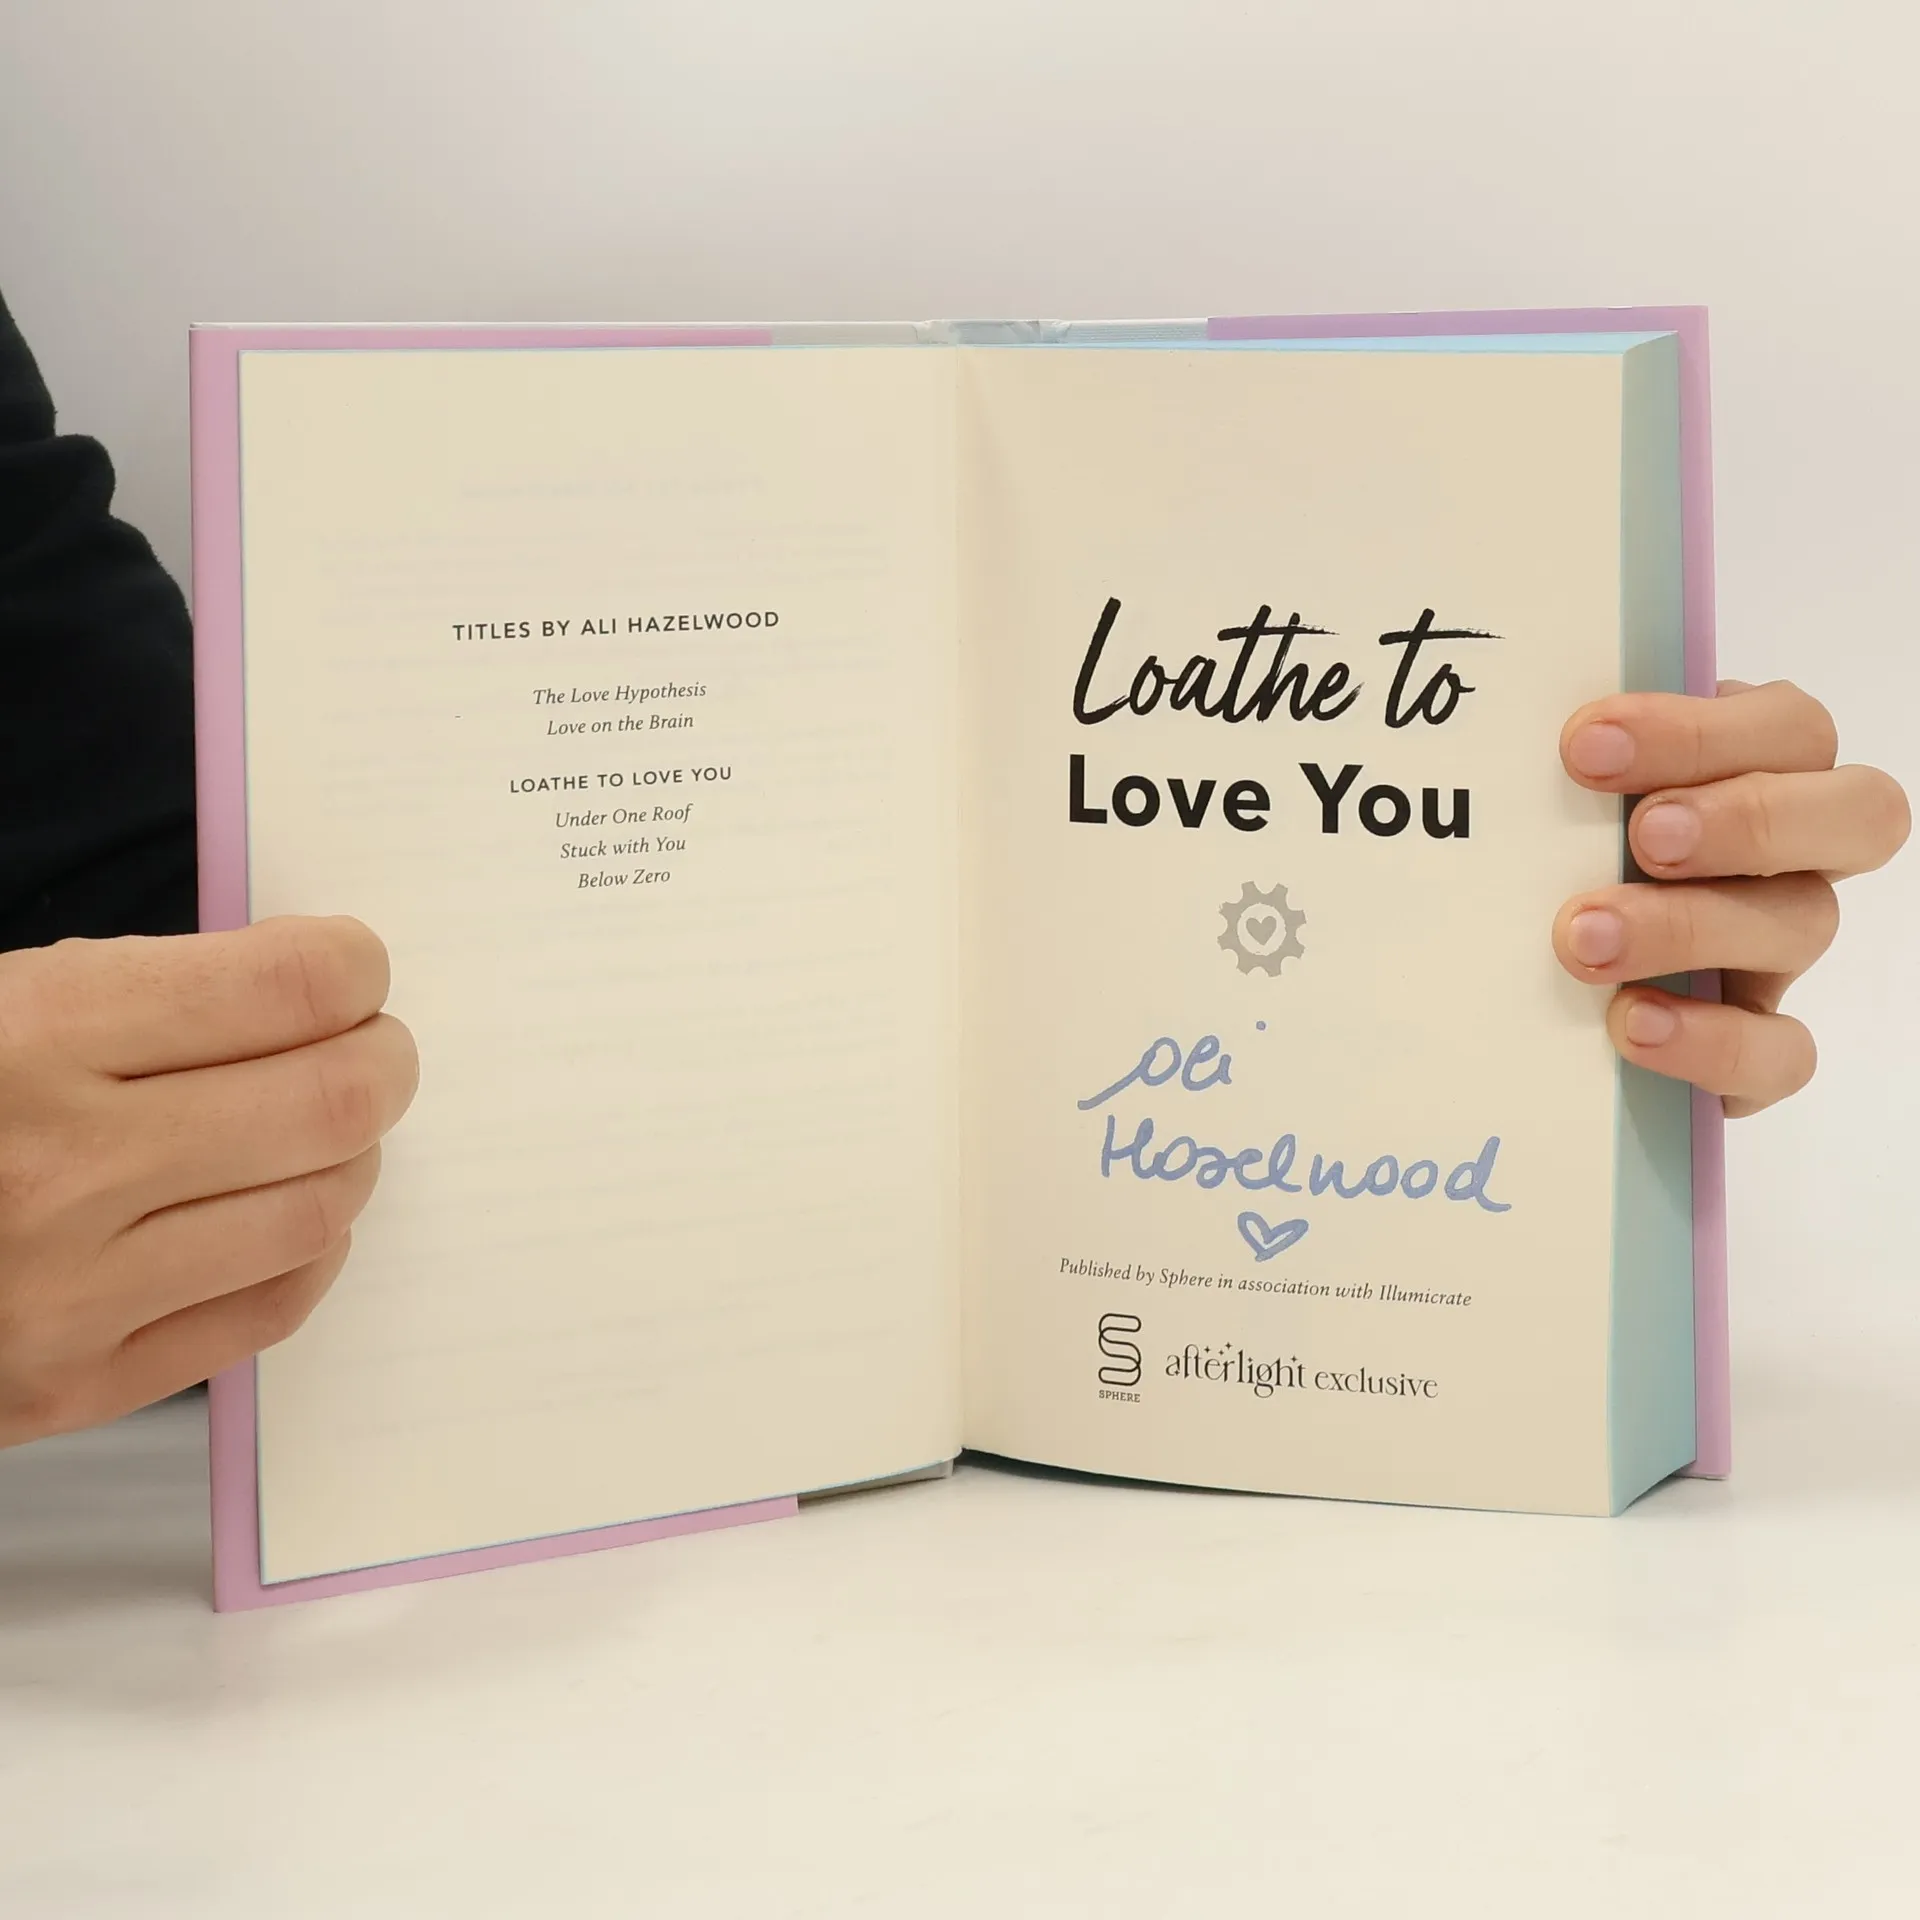 TITLES BY ALI HAZELWOOD
The Love Hypothesis
Love on the Brain
LOATHE TO LOVE YOU
Under One Roof
Stuck with You
Below Zero
Loathe to
Love You
Ali
Hazelwood
Published by Sphere in association with Illumicrate
SPHERE
afterlight exclusive